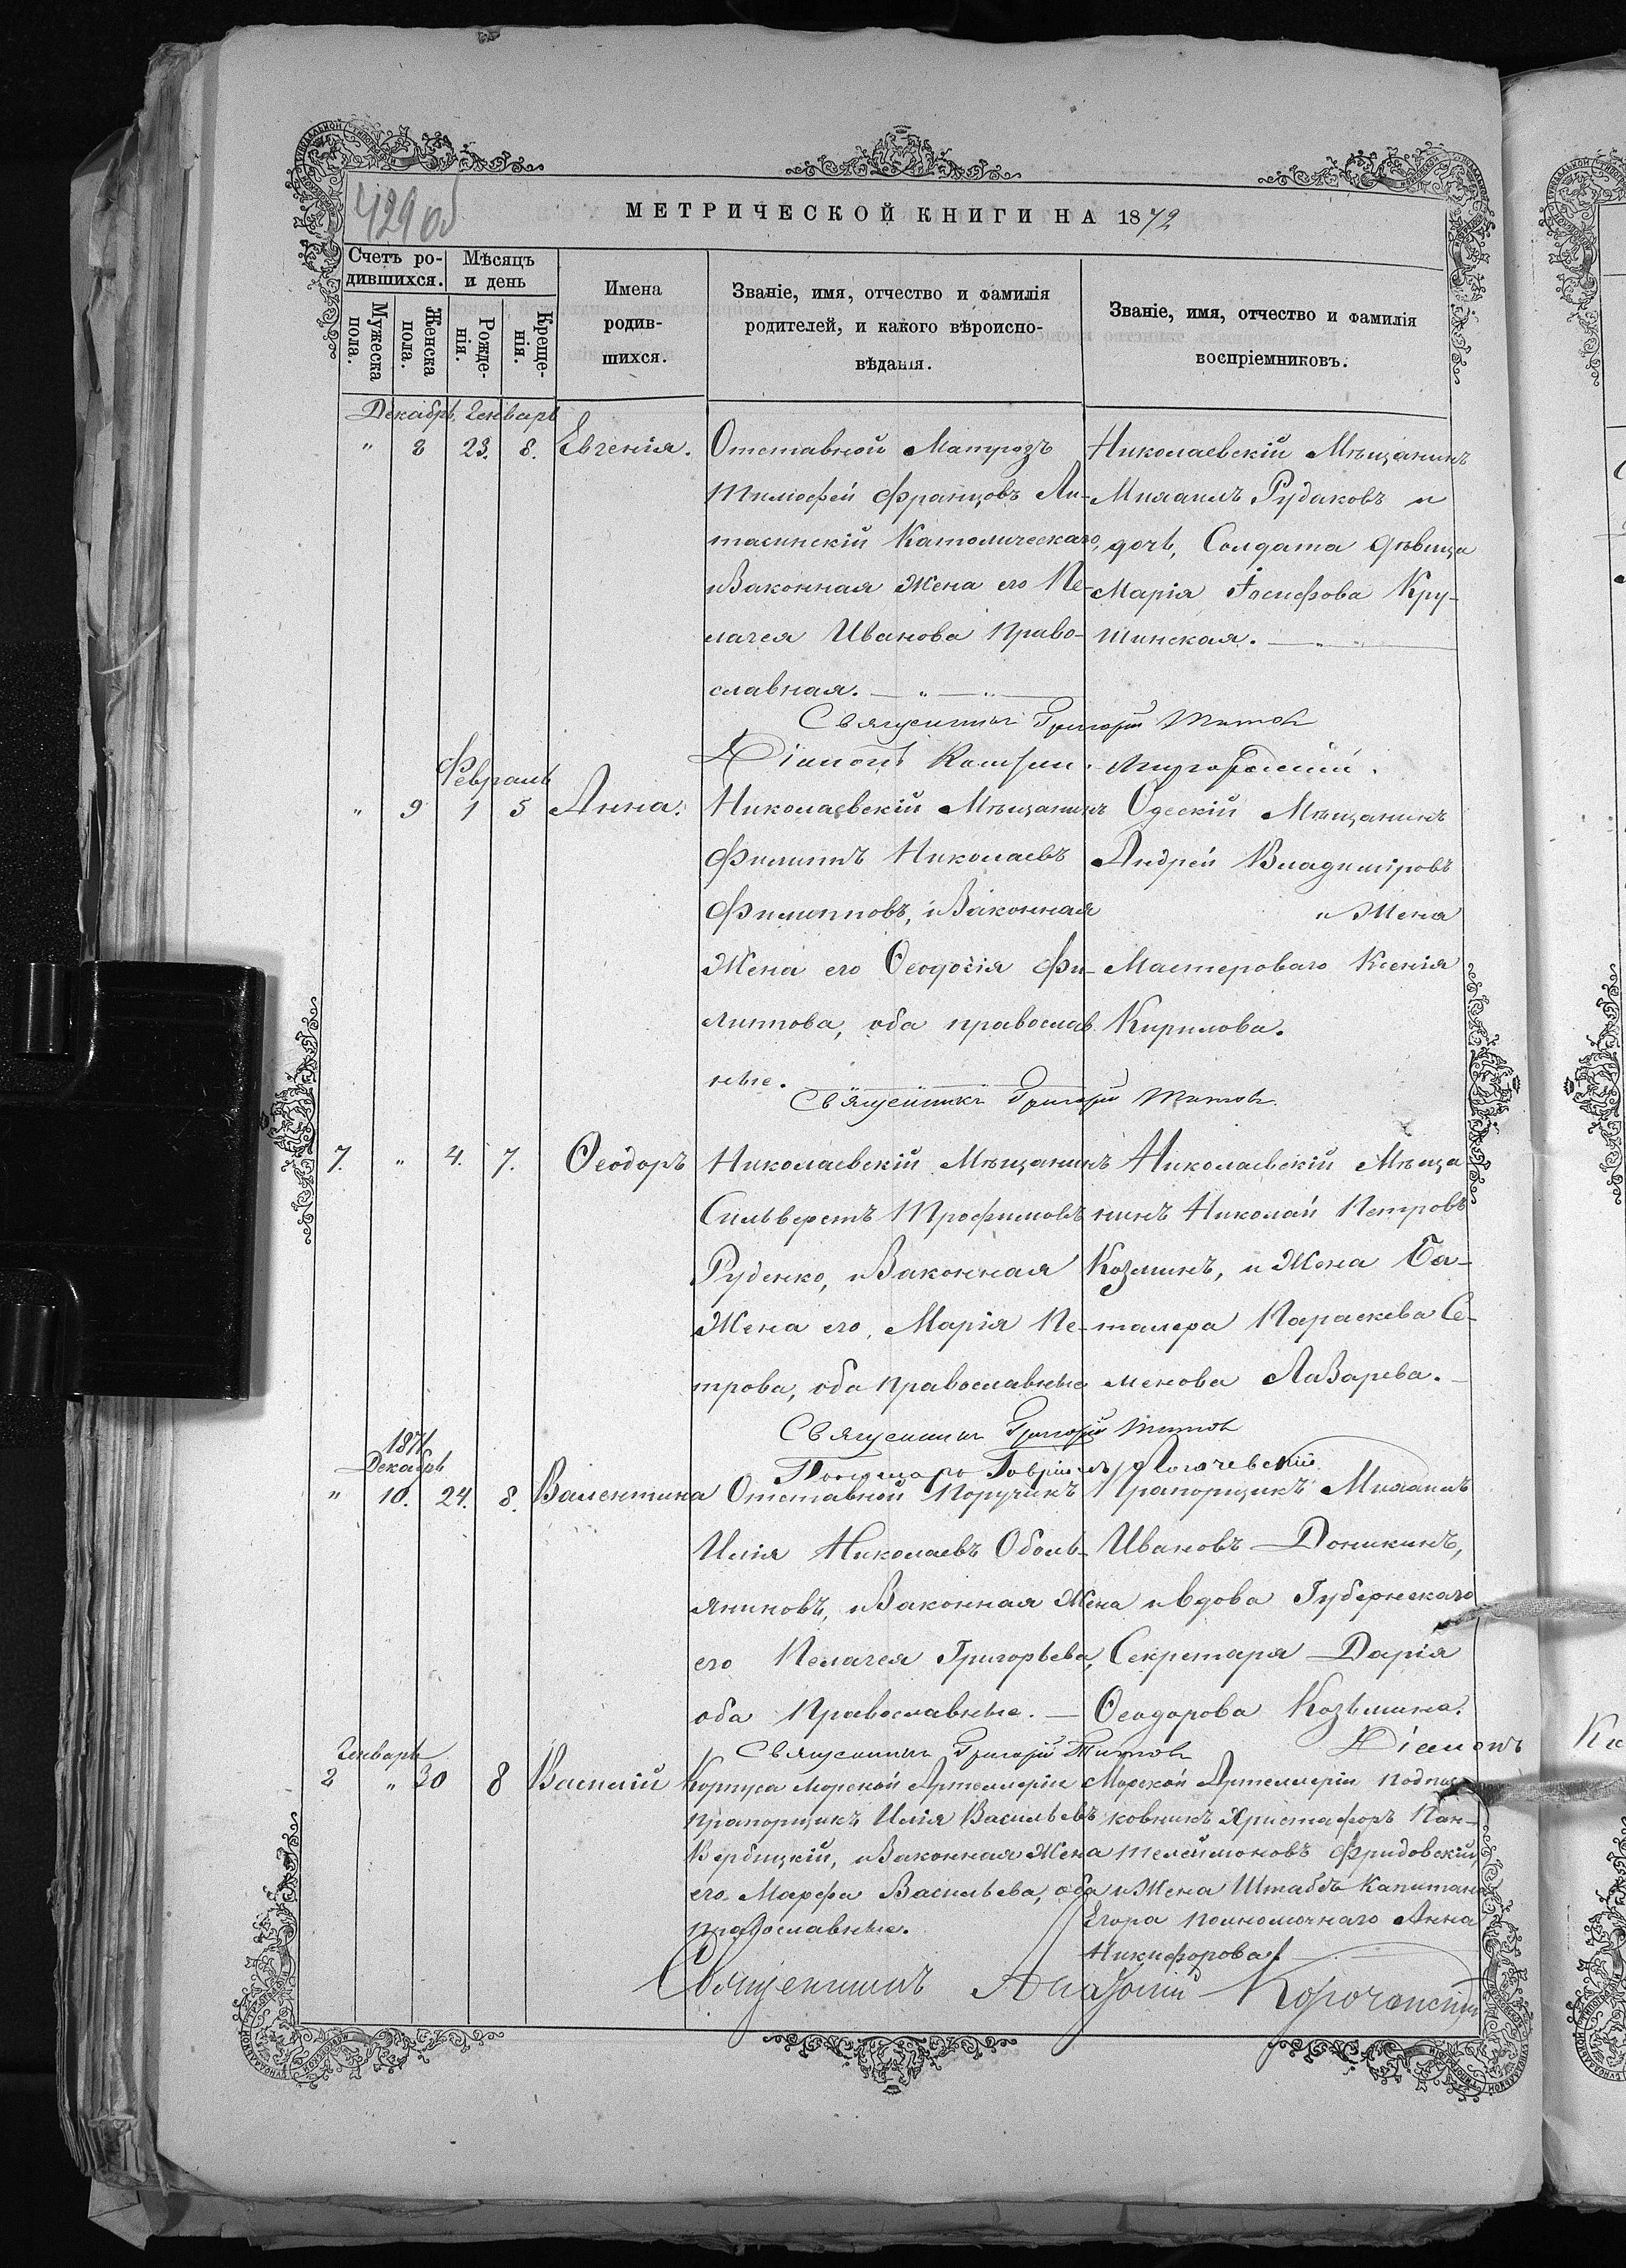 429 об
МЕТРИЧЕСКОЙ КНИГИ НА 1872
Счетъ ро-
дившихся.
Мѣсяцъ
и день
Мужеска
пола.
Женска
пола.
Рожде-
нія.
Креще-
нія.
Имена
родив-
шихся.
Званіе, имя, отчество и фамилія
родителей, и какого вѣроиспо-
вѣданія.
Званіе, имя, отчество и фамилія
воспріемниковъ.
Декабрь Генварь
" 8 23. 8. Евгенія.
Отставной Матрозъ
Тимофей Францовъ Ли-
тасинскій Католическаго,
и Законная Жена его Пе-
лагея Иванова Право-
славная.
Николаевскій Мѣщанинъ
Михаилъ Рудаковъ и
дочь, Солдата дѣвица
Марія Іосифова Кру-
шинская.
Священникъ Григорій Титов
Діаконъ
Февраль
" 9 1 5 Анна.
Николаевскій Мѣщанинъ
Филиппъ Николаевъ
Филипповъ, и Законная
Жена его Ѳеодосія Фи-
липпова, оба православ
ные.
Одескій Мѣщанинъ
Андрей Владиміровъ
и Жена
Мастероваго Ксенія
Кирилова.
Священникъ Григорій Титов
7. " 4. 7. Ѳеодоръ
Николаевскій Мѣщанинъ
Сильверстъ Трофимовъ
Руденко, и Законная
Жена его, Марія Пе-
трова, оба Православные
Николаевскій Мѣща
нинъ Николай Петровъ
Козминъ, и Жена Ба-
талера Параскева Се-
менова Лазарева.
Священникъ Григорій Титов
Пономарь Гавріилъ
1871
Декабрь
" 10. 24. 8. Валентина
Отставной Поручикъ
Илія Николаевъ Оболь-
яниновъ, и Законная Жена
его Пелагея Григорьева,
оба Православные.
Прапорщикъ Михаилъ
Ивановъ Доникинъ,
и вдова Губернскаго
Секретаря Дарія
Ѳеодорова Козьмина.
Священникъ Григорій Титов
Діаконъ
Генварь
2 " 30 8 Василій
Корпуса Морской Артиллеріи
Прапорщикъ Илія Васильевъ
Вербицкій, и Законная Жена
его Марфа Васильева, оба
православные.
Морской Артиллеріи Подпол
ковникъ Христофоръ Пан-
телеймоновъ Фридовскій,
и Жена Штабсъ Капитана
Егора Полномочнаго Анна
Никифорова.
Священникъ